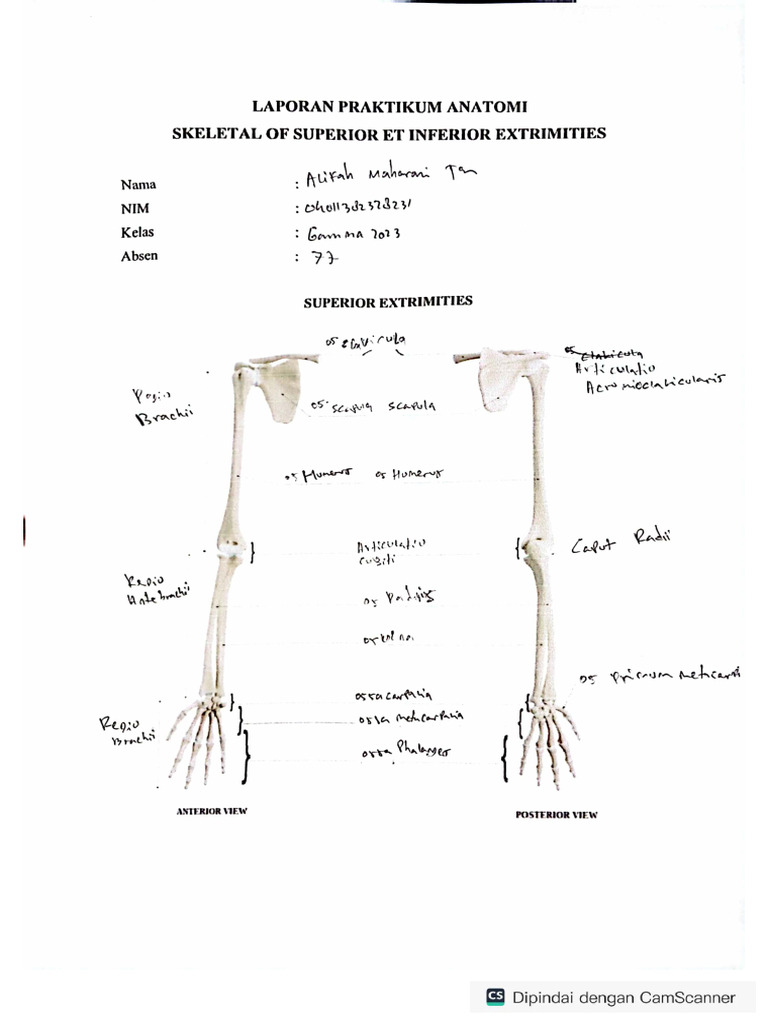 LAPORAN PRAKTIKUM ANATOMI
SKELETAL OF SUPERIOR ET INFERIOR EXTRIMITIES
Nama : Alifah Maharani Tan
NIM
Kelas : Gamma 2023
Absen : 77
SUPERIOR EXTRIMITIES
os clavicula
os clabicula
Articulatio
Acromioclabicularis
Regio
Brachii
os scapula scapula
os Humerus os Humerus
Articulatio
cubiti
Caput Radii
Regio
Antebrachii
os Radius
os ulna
os primum meticarpi
ossa carphalia
ossa meticarphalia
Regio
Brachii
ossa Phalanges
ANTERIOR VIEW
POSTERIOR VIEW
CS Dipindai dengan CamScanner